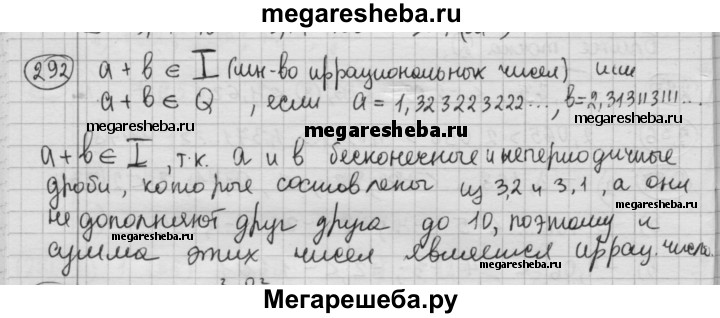 megaresheba.ru
292 a + b ∈ I (мн-во иррациональных чисел) или
a + b ∈ Q , если a = 1,323223222..., b = 2,313113111...
megaresheba.ru megaresheba.ru
a + b ∈ I , т.к. a и b бесконечные и непериодичные
дроби, которые составлены из 3,2 и 3,1, а они
megaresheba.ru
не дополняют друг друга до 10, поэтому и
megaresheba.ru megaresheba.ru
сумма этих чисел является иррац. число.
Мегарешеба.ру